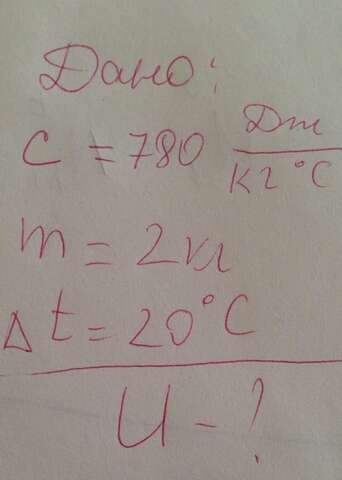 Дано:
c = 780 Дж/кг°C
m = 2 кг
Δt = 20°C
U - ?